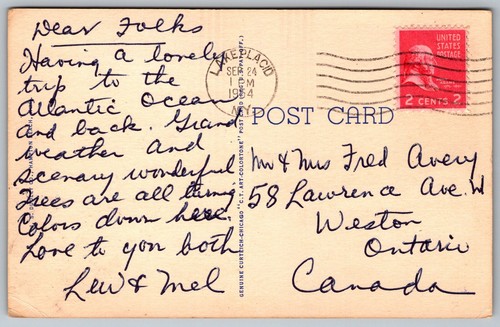 Dear Folks
Having a lovely
trip to the
Atlantic Ocean
and back. Grand
weather and
scenary wonderful
Trees are all turning
Colors down here.
Love to you both
Lew & Mel
LAKE PLACID
SEP 24
1 PM
1954
N.Y.
UNITED
STATES
POSTAGE
2 CENTS 2
POST CARD
Mr & Mrs Fred Avery
58 Lawrence Ave. W
Weston
Ontario
Canada
GENUINE CURTEICH-CHICAGO "C.T. ART-COLORTONE" POST CARD (REG. U.S. PAT. OFF.)